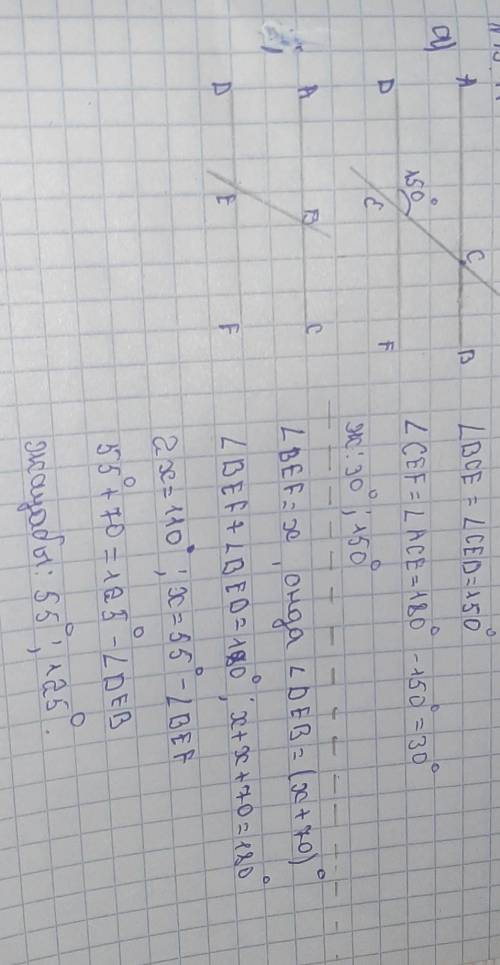 а)
A C B
150°
D E F
∠BCE = ∠CED = 150°
∠CEF = ∠ACE = 180° - 150° = 30°
ж: 30° ; 150°
A B C
D E F
∠BEF = x, онда ∠DEB = (x + 70)°
∠BEF + ∠BED = 180° ; x + x + 70 = 180°
2x = 110° ; x = 55° - ∠BEF
55° + 70 = 125° - ∠DEB
жауабы: 55° ; 125°.